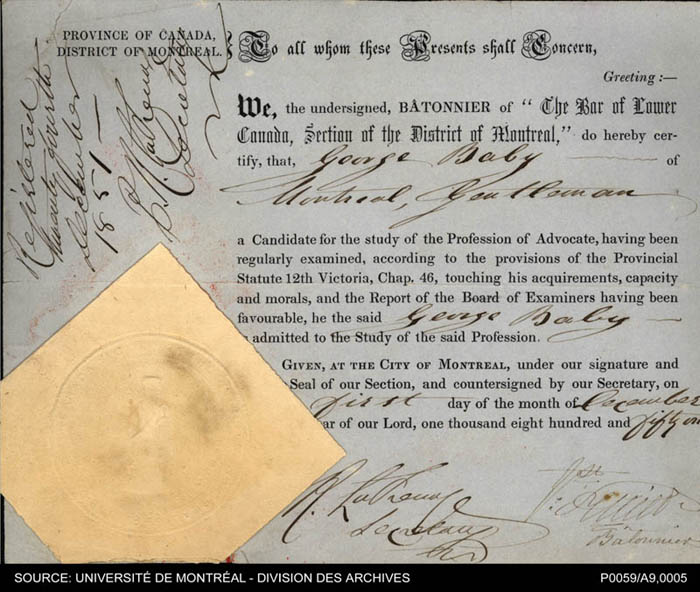 PROVINCE OF CANADA,
DISTRICT OF MONTREAL.
Registered
twenty fourth
December
1851 —
Secretary
To all whom these Presents shall Concern,
Greeting :—
We, the undersigned, BÂTONNIER of "The Bar of Lower
Canada, Section of the District of Montreal," do hereby cer-
tify, that, George Baby of
Montreal, Gentleman
a Candidate for the study of the Profession of Advocate, having been
regularly examined, according to the provisions of the Provincial
Statute 12th Victoria, Chap. 46, touching his acquirements, capacity
and morals, and the Report of the Board of Examiners having been
favourable, he the said George Baby —
admitted to the Study of the said Profession.
GIVEN, AT THE CITY OF MONTREAL, under our signature and
Seal of our Section, and countersigned by our Secretary, on
first day of the month of December
ar of our Lord, one thousand eight hundred and fifty on
Secretary
Bâtonnier
SOURCE: UNIVERSITÉ DE MONTRÉAL - DIVISION DES ARCHIVES
P0059/A9,0005